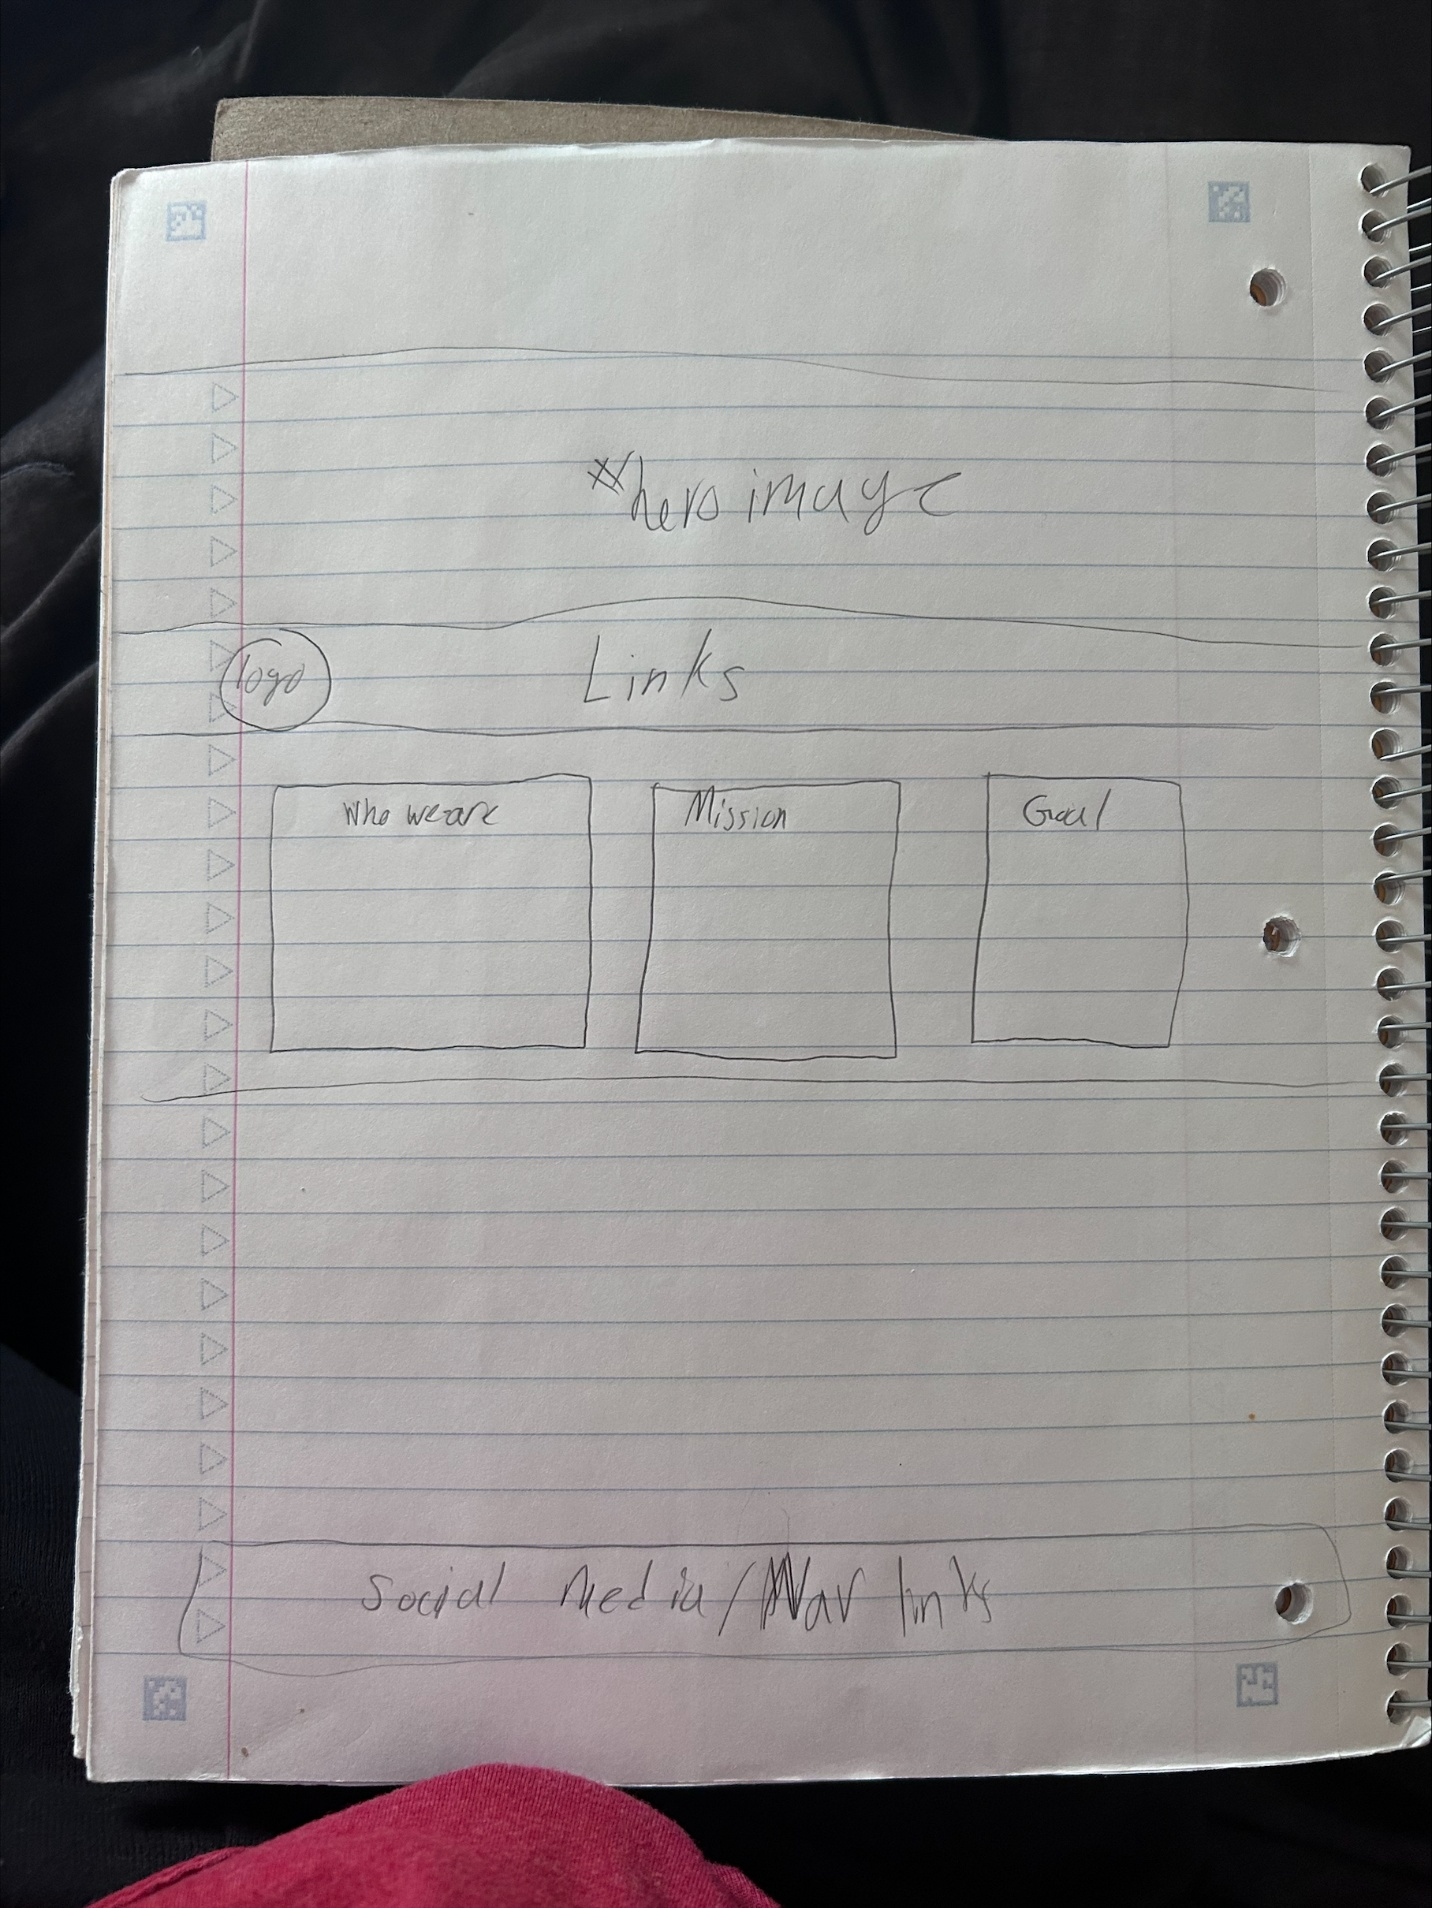 *hero image
logo Links
Who we are Mission Goal
Social Media/Nav links